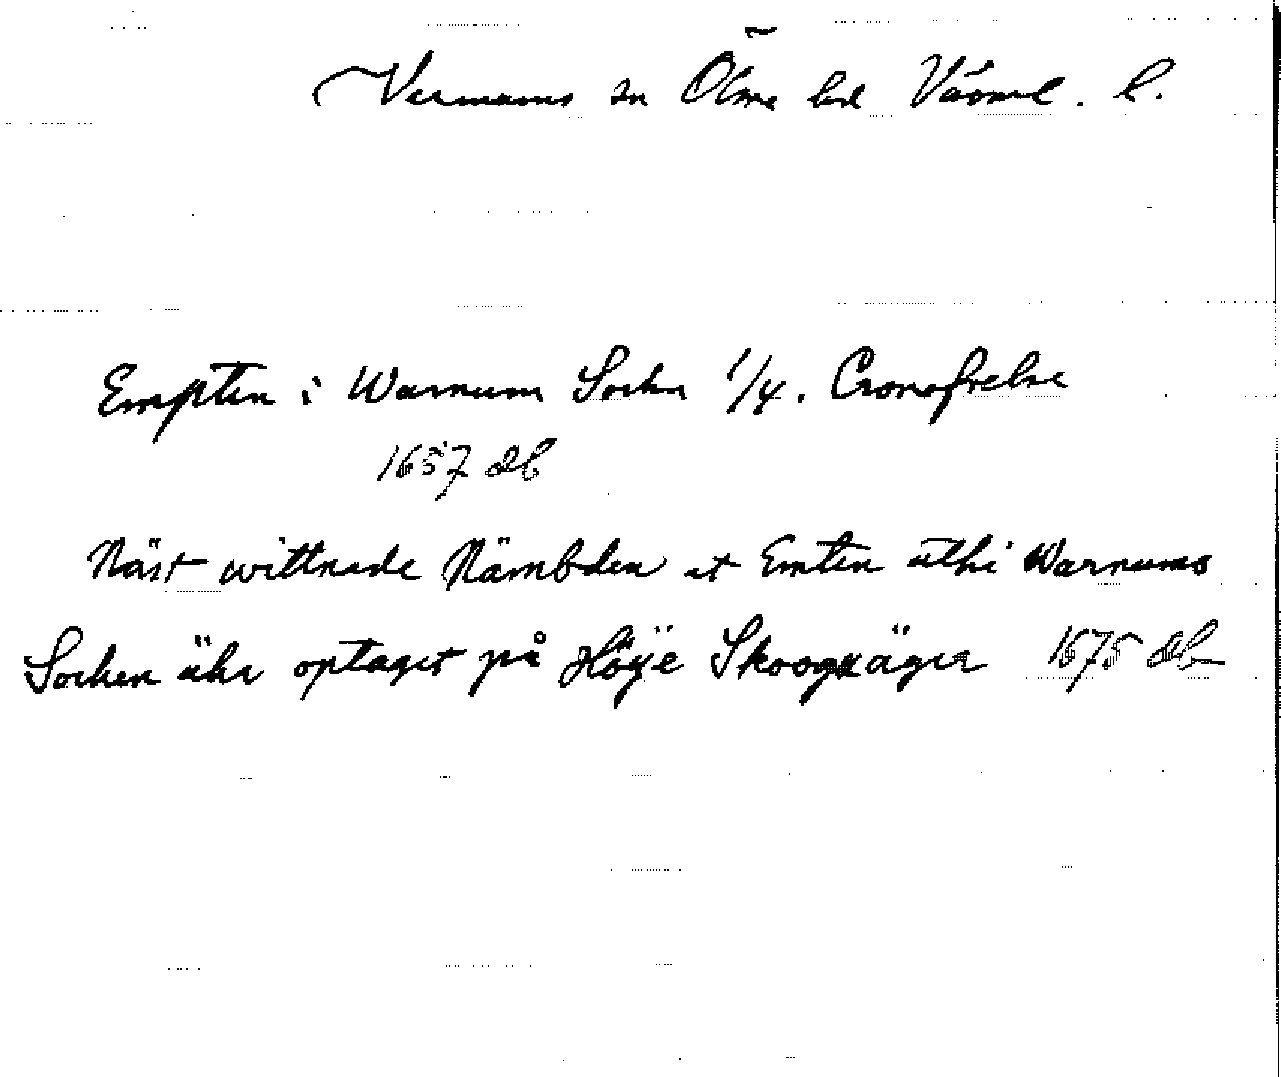 Varnums sn Ölme hd Värml. l.
Empten i Warnum Sochn 1/4. Cronofrelse
1657 db
Näst wittnade Nämbden at Emten uthi Warnums
Sochen ähr optaget på Höije Skoogxäger 1675 db